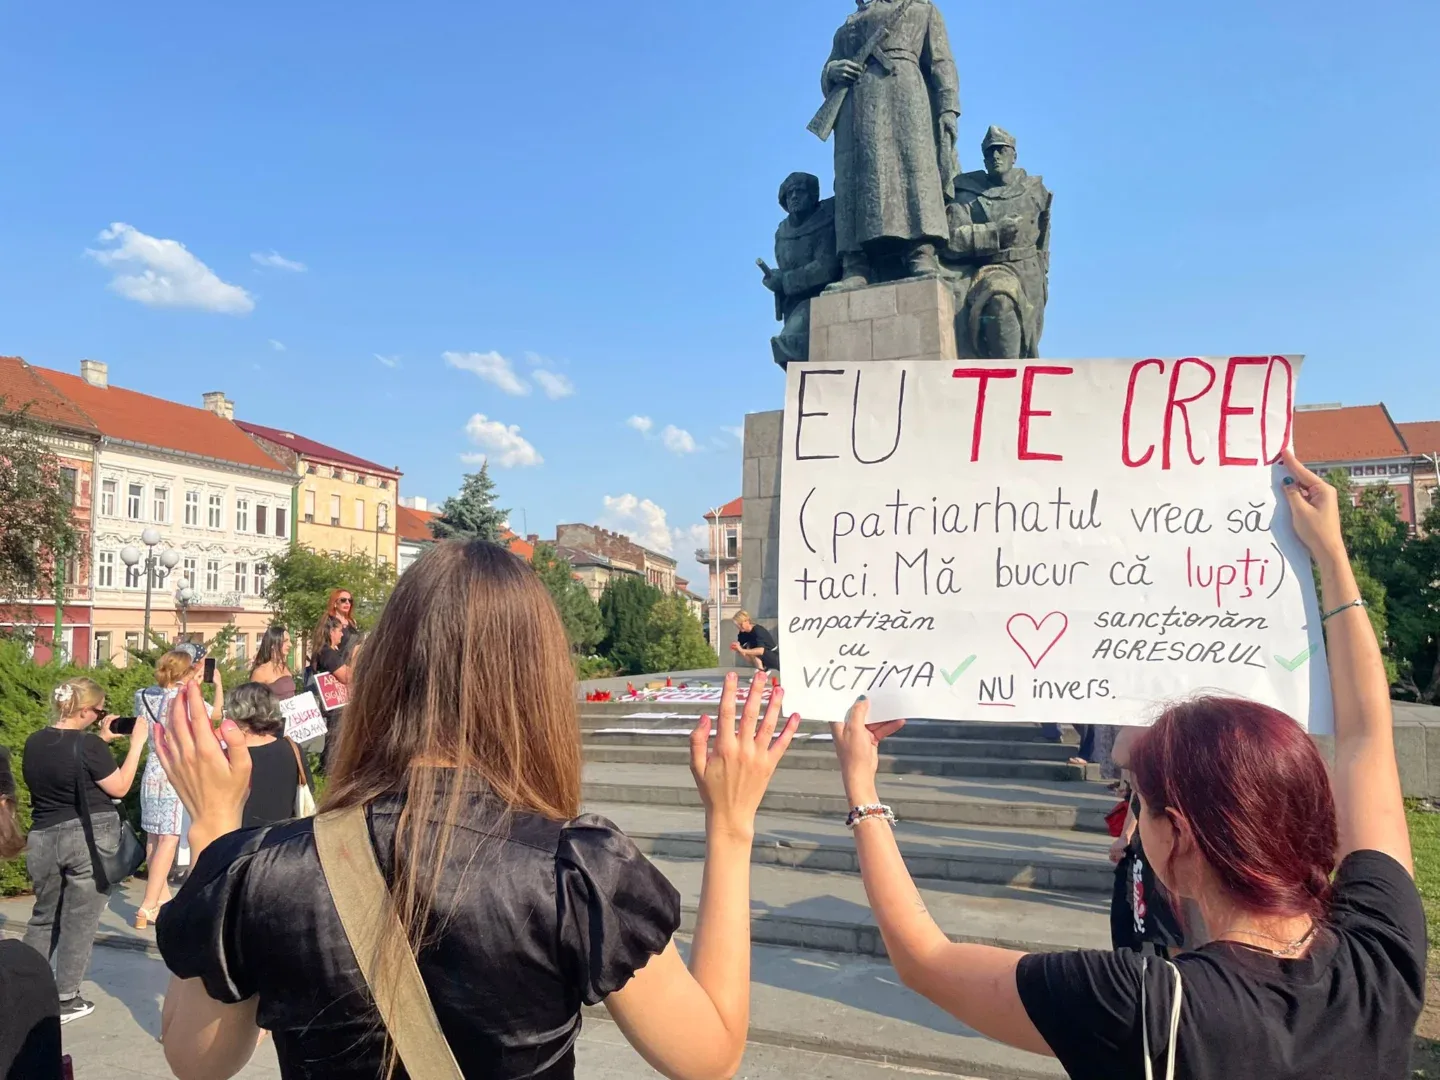 EU TE CRED
(patriarhatul vrea să
taci. Mă bucur că lupți)
empatizăm
cu
VICTIMA ✓
sancționăm
AGRESORUL ✓
NU invers.